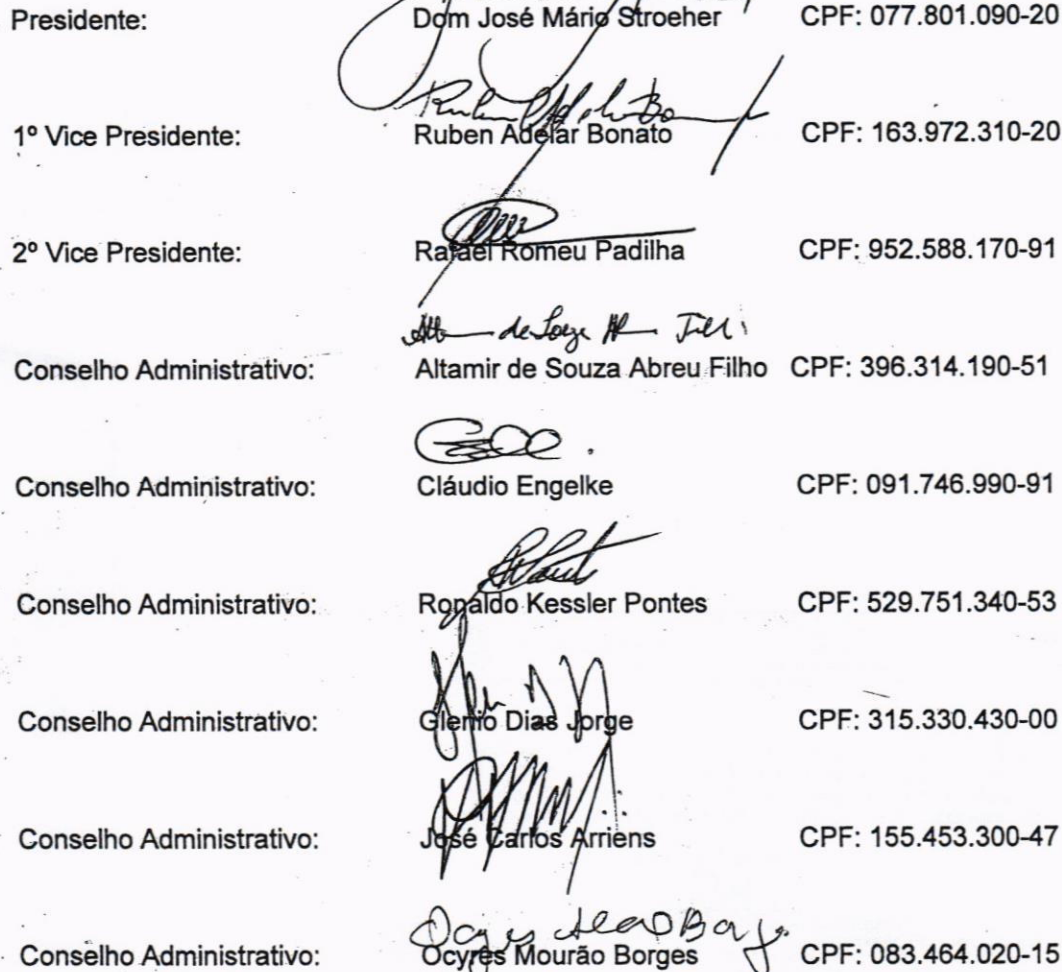 Presidente: Dom José Mário Stroeher CPF: 077.801.090-20
1º Vice Presidente: Ruben Adelar Bonato CPF: 163.972.310-20
2º Vice Presidente: Rafael Romeu Padilha CPF: 952.588.170-91
Conselho Administrativo: Altamir de Souza Abreu Filho CPF: 396.314.190-51
Conselho Administrativo: Cláudio Engelke CPF: 091.746.990-91
Conselho Administrativo: Ronaldo Kessler Pontes CPF: 529.751.340-53
Conselho Administrativo: Glenio Dias Jorge CPF: 315.330.430-00
Conselho Administrativo: José Carlos Arriens CPF: 155.453.300-47
Conselho Administrativo: Ocyres Mourão Borges CPF: 083.464.020-15